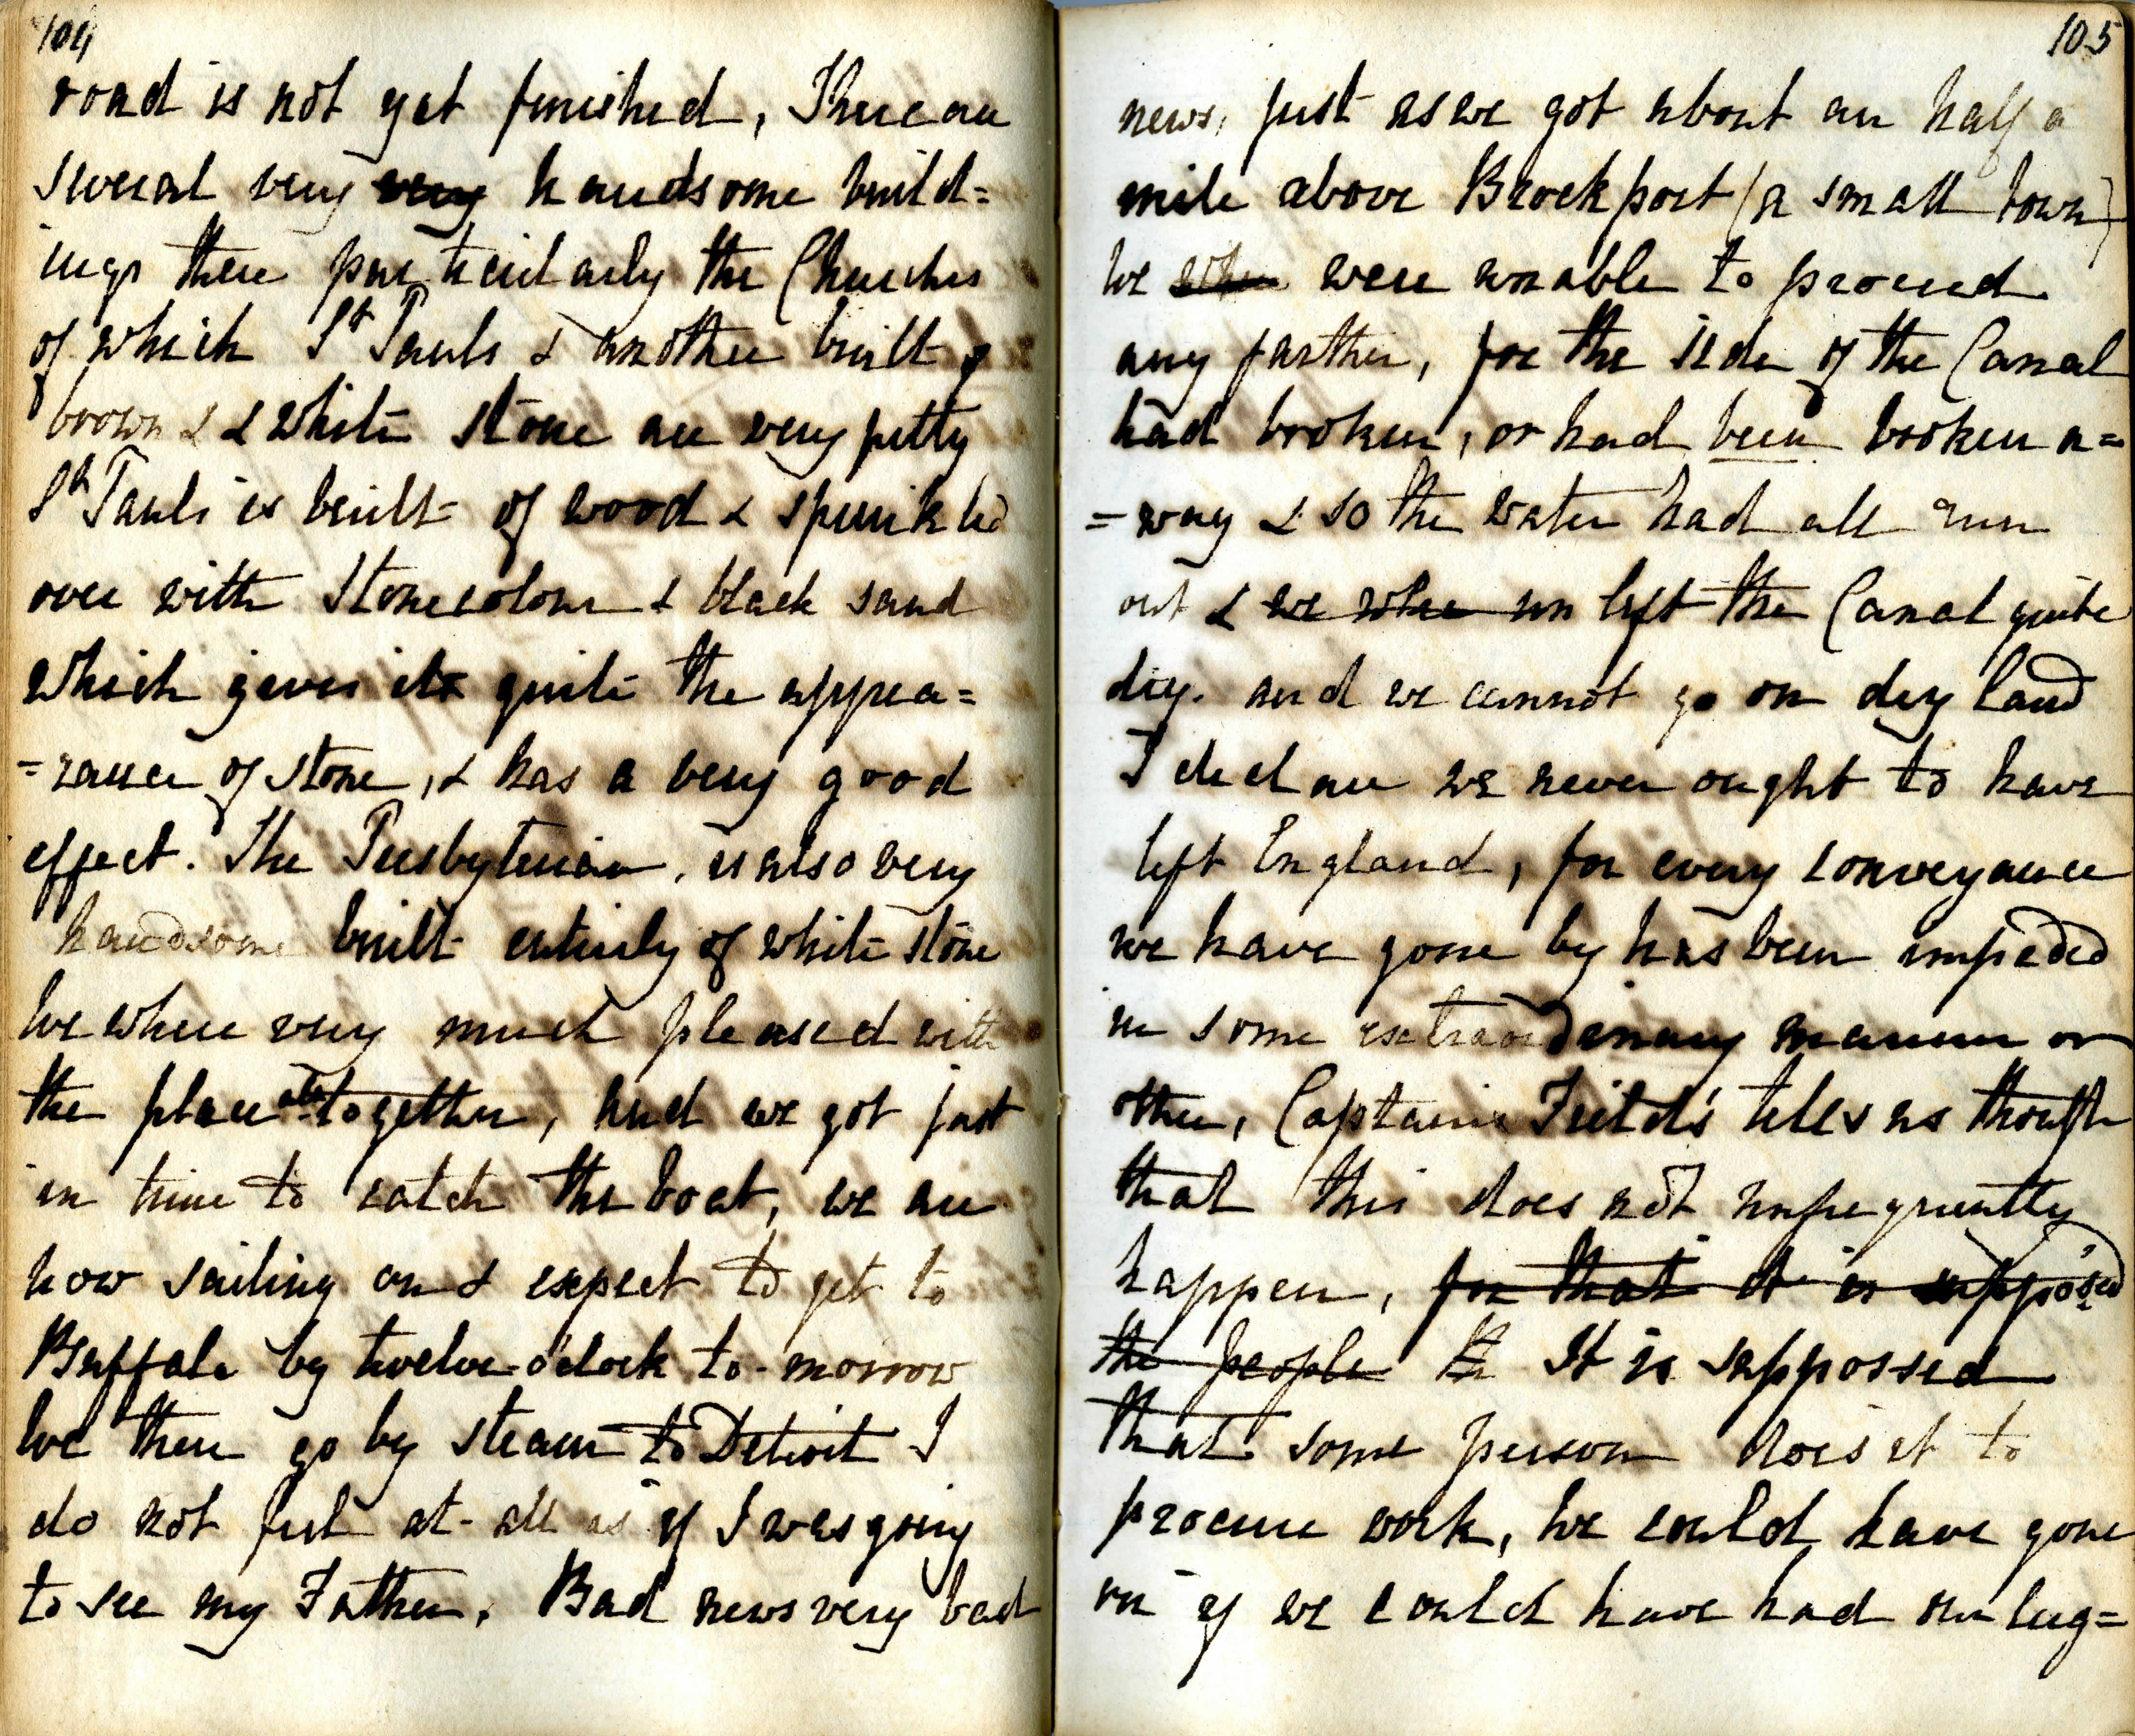 104
road is not yet finished, There are
several very very handsome build=
ings there particularly the Churches
of which St Pauls & another built of
brown & & white stone are very pretty
St Pauls is built of wood & sprinkled
over with stonecolour & black sand
which gives it quite the appea=
=rance of stone, & has a very good
effect. The Presbyterian, is also very
handsome built entirely of white stone
We where very much pleased with
the place altogether, And we got just
in time to catch the boat, we are
now sailing on & expect to get to
Buffalo by twelve o'clock to-morrow
We then go by steam to Detroit I
do not feel at all as if I was going
to see my Father. Bad news very bad
105
news, just as we got about an half a
mile above Brockport (a small town)
We when were unable to proceed
any farther, for the side of the Canal
had broken, or had been broken a=
=way & so the water had all run
out & we when left the Canal quite
dry. and we cannot go on dry land
I declare we never ought to have
left England, for every conveyance
we have gone by has been impeded
in some extraordinary manner or
other, Captain Feilds tells us though
that this does not unfrequently
happen, for that it is supposed
the people th It is suppossed
that some person does it to
procure work, We could have gone
on if we could have had our lug=